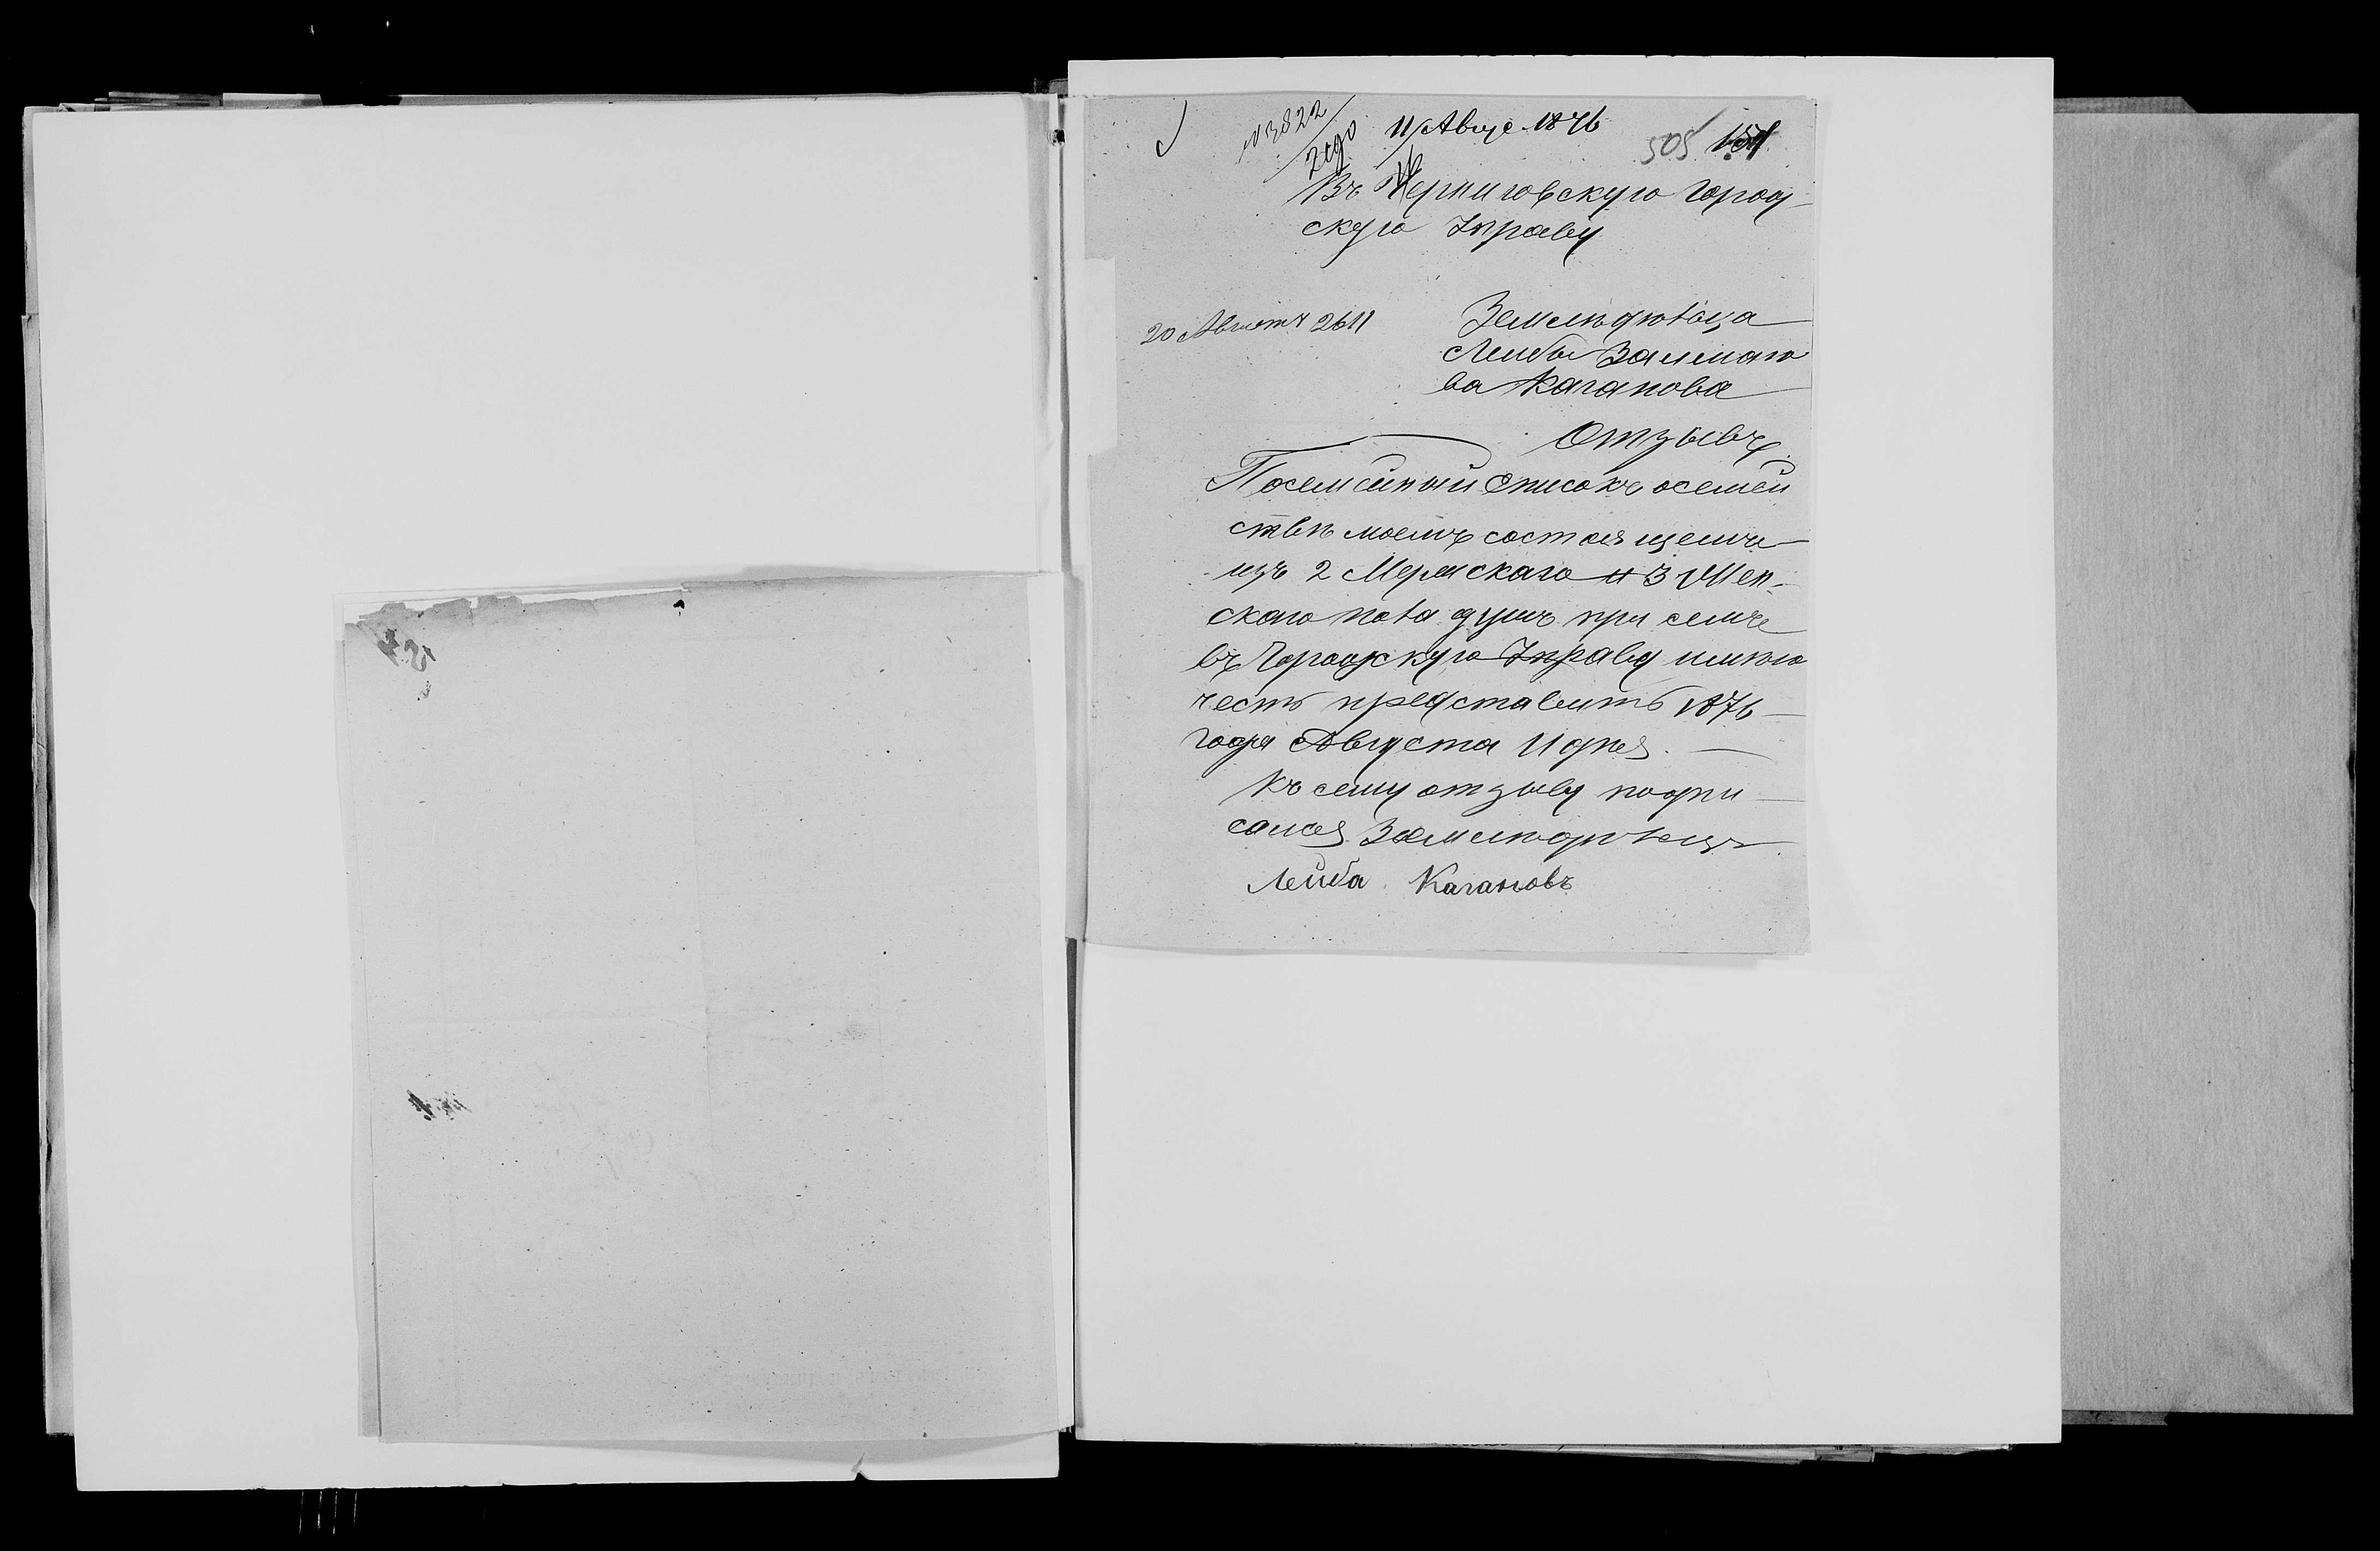 №3822 11 Авгус 1876
505 151
Въ Черниговскую Город
скую Управу
20 Август 2611
Земледѣльца
Лейбы Залмано
ва Каганова
Отзывъ
Посемейный списокъ осемей
ствѣ моемъ состоящемъ
изъ 2 Мужскаго и 3 Жен-
скаго пола душъ при семъ
въ Городскую Управу имѣю
честь представить 1876
года Августа 11 дня
Къ сему отзыву подпи
сался Земледѣлецъ
Лейба Кагановъ